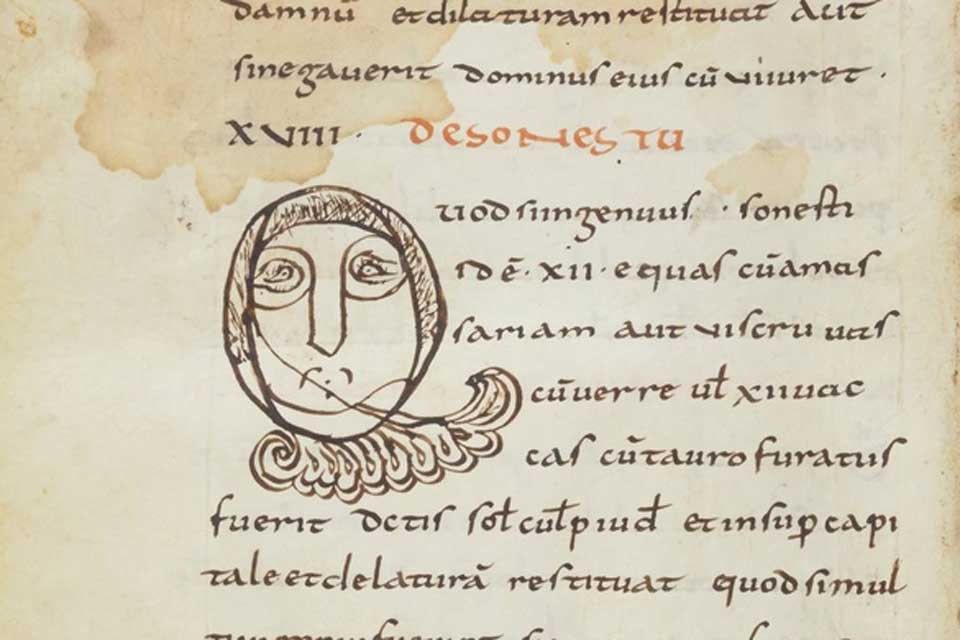 damnū et dilaturam restituat Aut
sinegauerit dominus eius cū uiuret .
XVIII . DE SONESTU
Quod si ingenuus . sonesti
id ē . xii . equas cū amis
sariam aut uiscru uas
cū uerre ul xii uac
cas cū tauro furatus
fuerit dctis sol culp iud et insup capi
tale et delaturā restituat quod simul